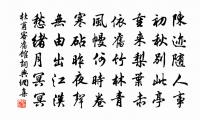 陳迹隨人事
初秋別此亭
重來梨葉赤
依舊竹林青
風幔何時卷
寒砧昨夜聲
無由出江漢
愁緒月冥冥
杜甫客舊館詞典網集